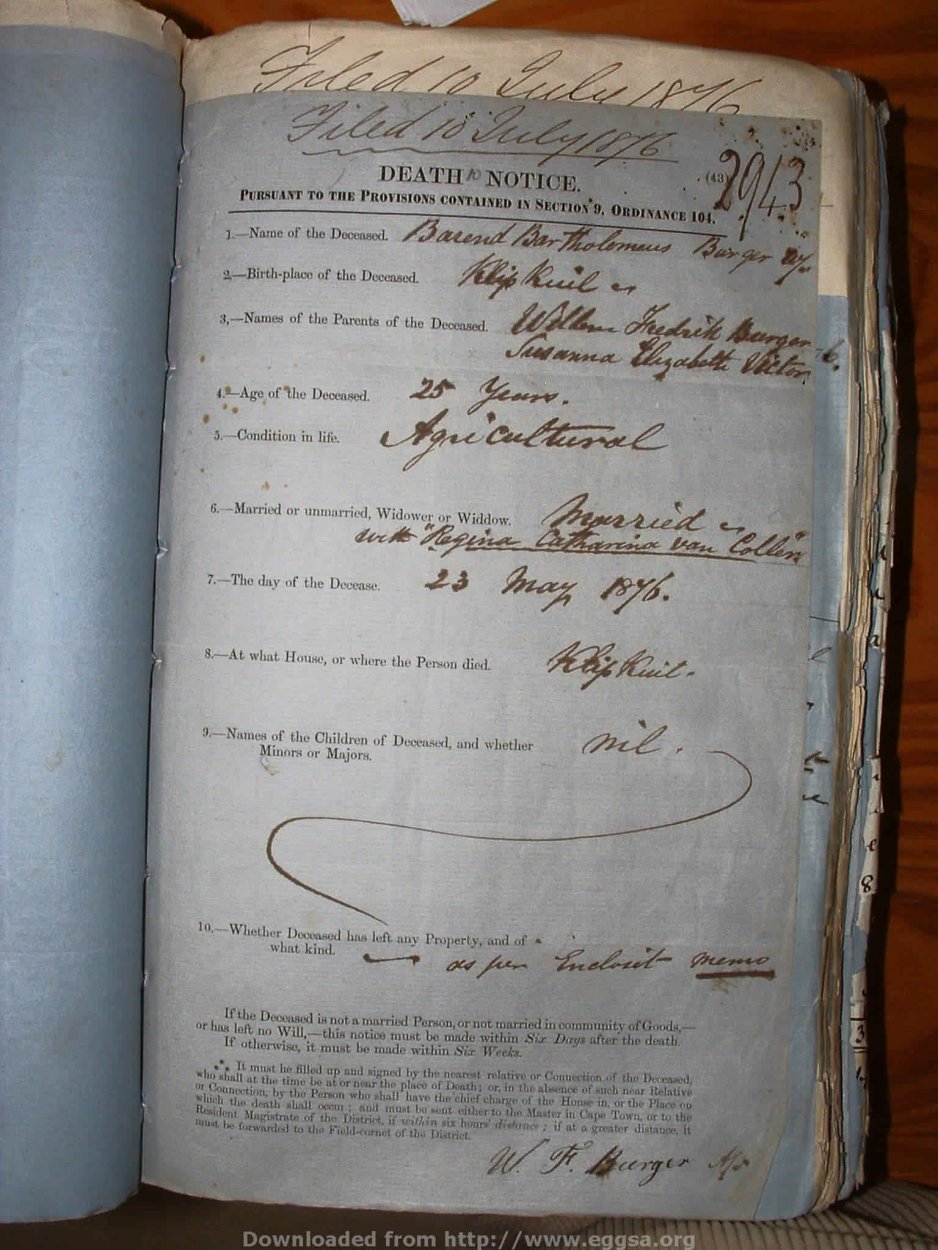 Filed 10 July 1876
Filed 10 July 1876
DEATH NOTICE.
(43)
2943
PURSUANT TO THE PROVISIONS CONTAINED IN SECTION 9, ORDINANCE 104.
1.—Name of the Deceased. Barend Bartholomeus Burger
2,—Birth-place of the Deceased. Klip Kuil
3,—Names of the Parents of the Deceased. Willem Fredrik Burger
Susanna Elizabeth Victor
4.—Age of the Deceased. 25 Years.
5.—Condition in life. Agricultural
6.—Married or unmarried, Widower or Widdow. Married
with "Regina Catharina van Collen"
7.—The day of the Decease. 23 May 1876.
8.—At what House, or where the Person died. Klip Kuil.
9.—Names of the Children of Deceased, and whether nil.
Minors or Majors.
10.—Whether Deceased has left any Property, and of
what kind. as per Enclosit memo
If the Deceased is not a married Person, or not married in community of Goods,—
or has left no Will,—this notice must be made within Six Days after the death.
If otherwise, it must be made within Six Weeks.
It must be filled up and signed by the nearest relative or Connection of the Deceased,
who shall at the time be at or near the place of Death; or, in the absence of such near Relative
or Connection, by the Person who shall have the chief charge of the House in, or the Place on
which the death shall occur; and must be sent either to the Master in Cape Town, or to the
Resident Magistrate of the District, if within six hours' distance; if at a greater distance, it
must be forwarded to the Field-cornet of the District.
W. F. Burger
Downloaded from http://www.eggsa.org